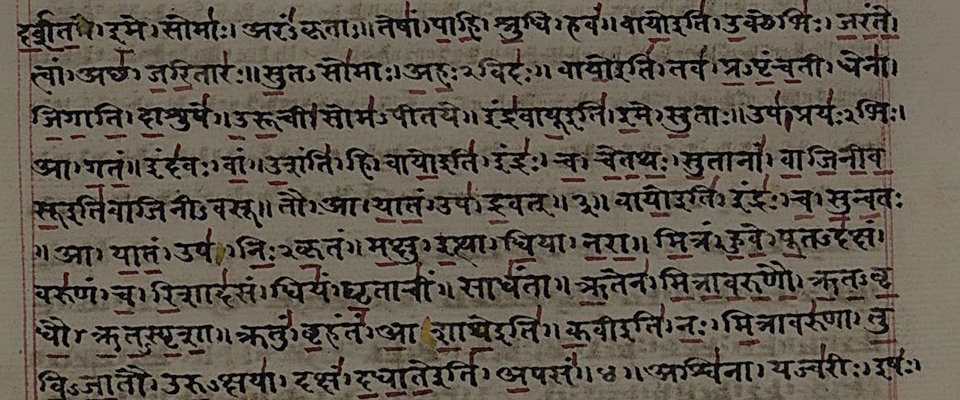 दर्शत। इमे। सोमाः। अरंऽकृताः॥ तेषां। पाहि। श्रुधि। हवं॥ वायोइति। उक्थेभिः। जरंते
त्वां। अच्छ। जरितारः॥ सुतऽसोमाः। अहःऽविदः॥ वायोइति। तव। प्रऽपृंचती। धेना।
जिगाति। दाशुषे॥ उरूची। सोमऽपीतये॥ इंद्रवायूइति। इमे। सुताः॥ उप। प्रयःऽभिः।
आ। गतं॥ इंदवः। वां॥ उशंति। हि। वायोइति। इंद्रः। च। चेतथः। सुतानां। वाजिनीव
सूइतिवाजिनीऽवसू॥ तौ। आ। यातं। उप। द्रवत्॥३॥ वायोइति। इंद्रः। च। सुन्वतः
॥ आ। यातं। उप। निःऽकृतं॥ मक्षु। इत्था। धिया। नरा॥ मित्रं। हुवे। पूतऽदक्षं।
वरुणं। च। रिशादसं। धियं। घृताचीं॥ साधंता॥ ऋतेन। मित्रावरुणौ। ऋतऽवृ
धौ। ऋतऽस्पृशा॥ क्रतुं। बृहंतं। आशाथेइति॥ कवीइति। नः। मित्रावरुणा। तु
विऽजातौ। उरुऽक्षया। दक्षं। दधातेइति। अपसं॥४॥ अश्विना। यज्वरीः। इषः।